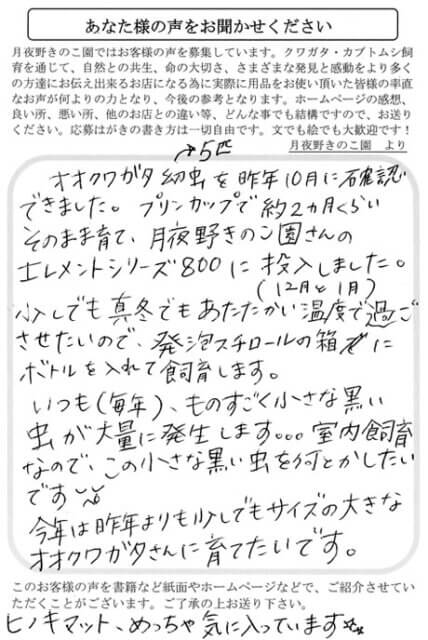 あなた様の声をお聞かせください
月夜野きのこ園ではお客様の声を募集しています。クワガタ・カブトムシ飼
育を通じて、自然との共生、命の大切さ、さまざまな発見と感動をより多く
の方達にお伝え出来るお店になる為に実際に用品をお使い頂いた皆様の率直
なお声が何よりの力となり、今後の参考となります。ホームページの感想、
良い所、悪い所、他のお店との違い等、どんな事でも結構ですので、お送り
ください。応募はがきの書き方は一切自由です。文でも絵でも大歓迎です!
月夜野きのこ園 より
5匹
オオクワガタ幼虫を昨年10月に確認
できました。プリンカップで約2ヵ月くらい
そのまま育て、月夜野きのこ園さんの
エレメントシリーズ800に投入しました。
(12月と1月)
少しでも真冬でもあたたかい温度で過ご
させたいので、発泡スチロールの箱に
ボトルを入れて飼育します。
いつも(毎年)、ものすごく小さな黒い
虫が大量に発生します。。。室内飼育
なので、この小さな黒い虫を何とかしたい
です
今年は昨年よりも少しでもサイズの大きな
オオクワガタさんに育てたいです。
このお客様の声を書籍など紙面やホームページなどで、ご紹介させてい
ただくことがございます。ご了承の上お送り下さい。
ヒノキマット、めっちゃ気に入っています